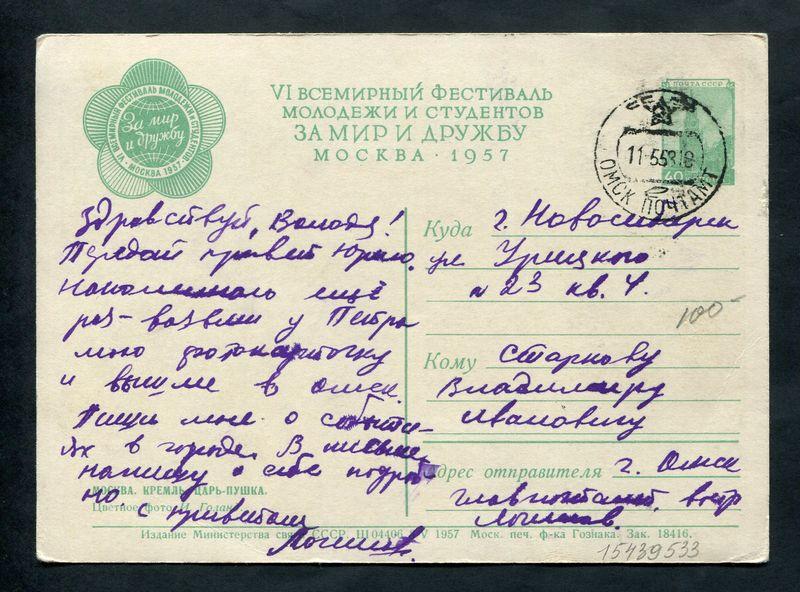 VI ВСЕМИРНЫЙ ФЕСТИВАЛЬ МОЛОДЕЖИ И СТУДЕНТОВ
МОСКВА · 1957
За мир
и дружбу
VI ВСЕМИРНЫЙ ФЕСТИВАЛЬ
МОЛОДЕЖИ И СТУДЕНТОВ
ЗА МИР И ДРУЖБУ
МОСКВА · 1957
ПОЧТА СССР
40
11-5 58.18
ОМСК ПОЧТАМТ
Здравствуй, Володя!
Передай привет Юрию.
ещё
раз - возьми у Петра
мою фотокарточку
и вышли в Омск.
Пиши мне о событи-
ях в городе. В письме
напишу о себе подроб
но с приветом
Куда г. Новосибирск
ул. Урицкого
23 кв. 4.
100-
Кому Старкову
Владимиру
Ивановичу
Адрес отправителя г. Омск
главпочтамт, востр
МОСКВА. КРЕМЛЬ. ЦАРЬ-ПУШКА.
Цветное фото И. Голанд
Издание Министерства связи СССР. Ш04406 V 1957 Моск. печ. ф-ка Гознака. Зак. 18416.
15439533